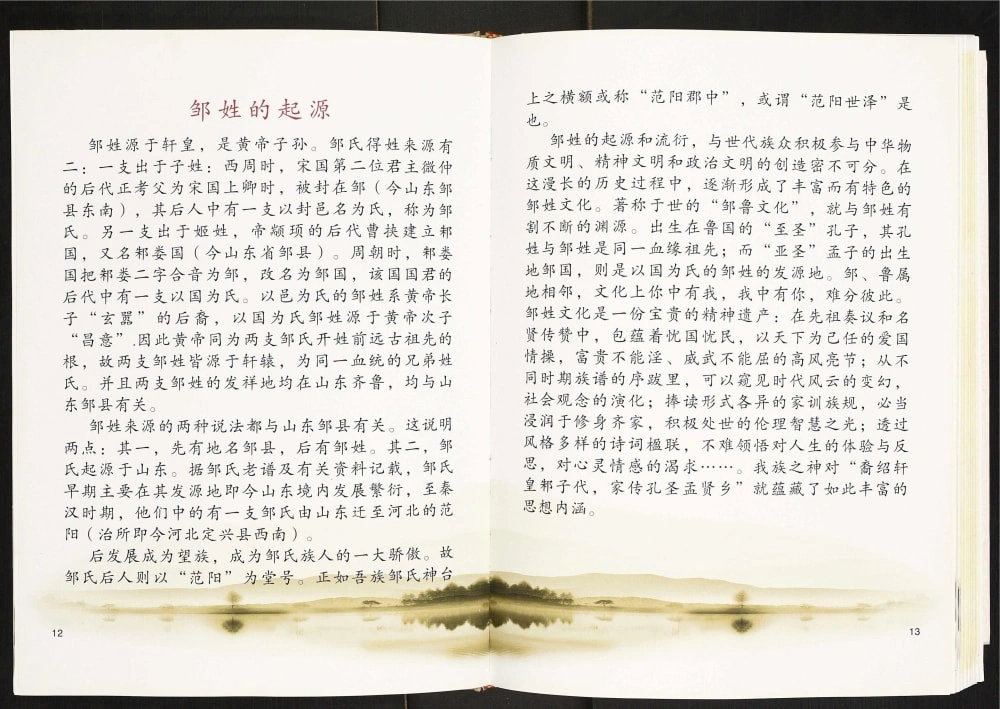 邹姓的起源
邹姓源于轩皇，是黄帝子孙。邹氏得姓来源有
二：一支出于子姓：西周时，宋国第二位君主微仲
的后代正考父为宋国上卿时，被封在邹（今山东邹
县东南），其后人中有一支以封邑名为氏，称为邹
氏。另一支出于姬姓，帝颛顼的后代曹挟建立邾
国，又名邾娄国（今山东省邹县）。周朝时，邾娄
国把邾娄二字合音为邹，改名为邹国，该国国君的
后代中有一支以国为氏。以邑为氏的邹姓系黄帝长
子“玄嚣”的后裔，以国为氏邹姓源于黄帝次子
“昌意”.因此黄帝同为两支邹氏开姓前远古祖先的
根，故两支邹姓皆源于轩辕，为同一血统的兄弟姓
氏。并且两支邹姓的发祥地均在山东齐鲁，均与山
东邹县有关。
邹姓来源的两种说法都与山东邹县有关。这说明
两点：其一，先有地名邹县，后有邹姓。其二，邹
氏起源于山东。据邹氏老谱及有关资料记载，邹氏
早期主要在其发源地即今山东境内发展繁衍，至秦
汉时期，他们中的有一支邹氏由山东迁至河北的范
阳（治所即今河北定兴县西南）。
后发展成为望族，成为邹氏族人的一大骄傲。故
邹氏后人则以“范阳”为堂号。正如吾族邹氏神台
12
上之横额或称“范阳郡中”，或谓“范阳世泽”是
也。
邹姓的起源和流衍，与世代族众积极参与中华物
质文明、精神文明和政治文明的创造密不可分。在
这漫长的历史过程中，逐渐形成了丰富而有特色的
邹姓文化。著称于世的“邹鲁文化”，就与邹姓有
割不断的渊源。出生在鲁国的“至圣”孔子，其孔
姓与邹姓是同一血缘祖先；而“亚圣”孟子的出生
地邹国，则是以国为氏的邹姓的发源地。邹、鲁属
地相邻，文化上你中有我，我中有你，难分彼此。
邹姓文化是一份宝贵的精神遗产：在先祖奏议和名
贤传赞中，包蕴着忧国忧民，以天下为己任的爱国
情操，富贵不能淫、威武不能屈的高风亮节；从不
同时期族谱的序跋里，可以窥见时代风云的变幻，
社会观念的演化；捧读形式各异的家训族规，必当
浸润于修身齐家，积极处世的伦理智慧之光；透过
风格多样的诗词楹联，不难领悟对人生的体验与反
思，对心灵情感的渴求……。我族之神对“裔绍轩
皇邾子代，家传孔圣孟贤乡”就蕴藏了如此丰富的
思想内涵。
13